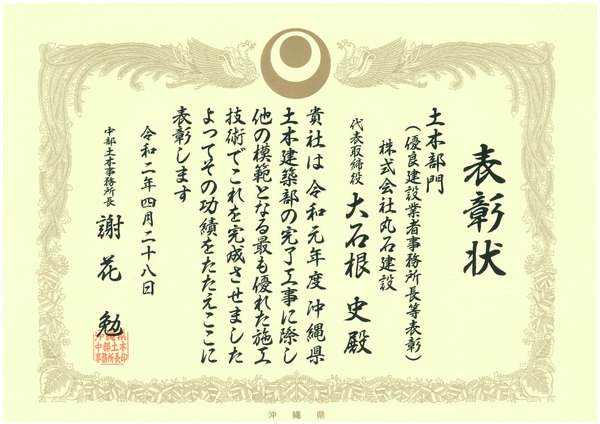 表彰状
土木部門
(優良建設業者事務所長等表彰)
株式会社丸石建設
代表取締役 大石根 史殿
貴社は令和元年度沖縄県
土木建築部の完了工事に際し
他の模範となる最も優れた施工
技術でこれを完成させました
よってその功績をたたえここに
表彰します
令和二年四月二十八日
中部土木事務所長 謝花 勉
沖縄県
中部土木
事務所長印
沖縄県